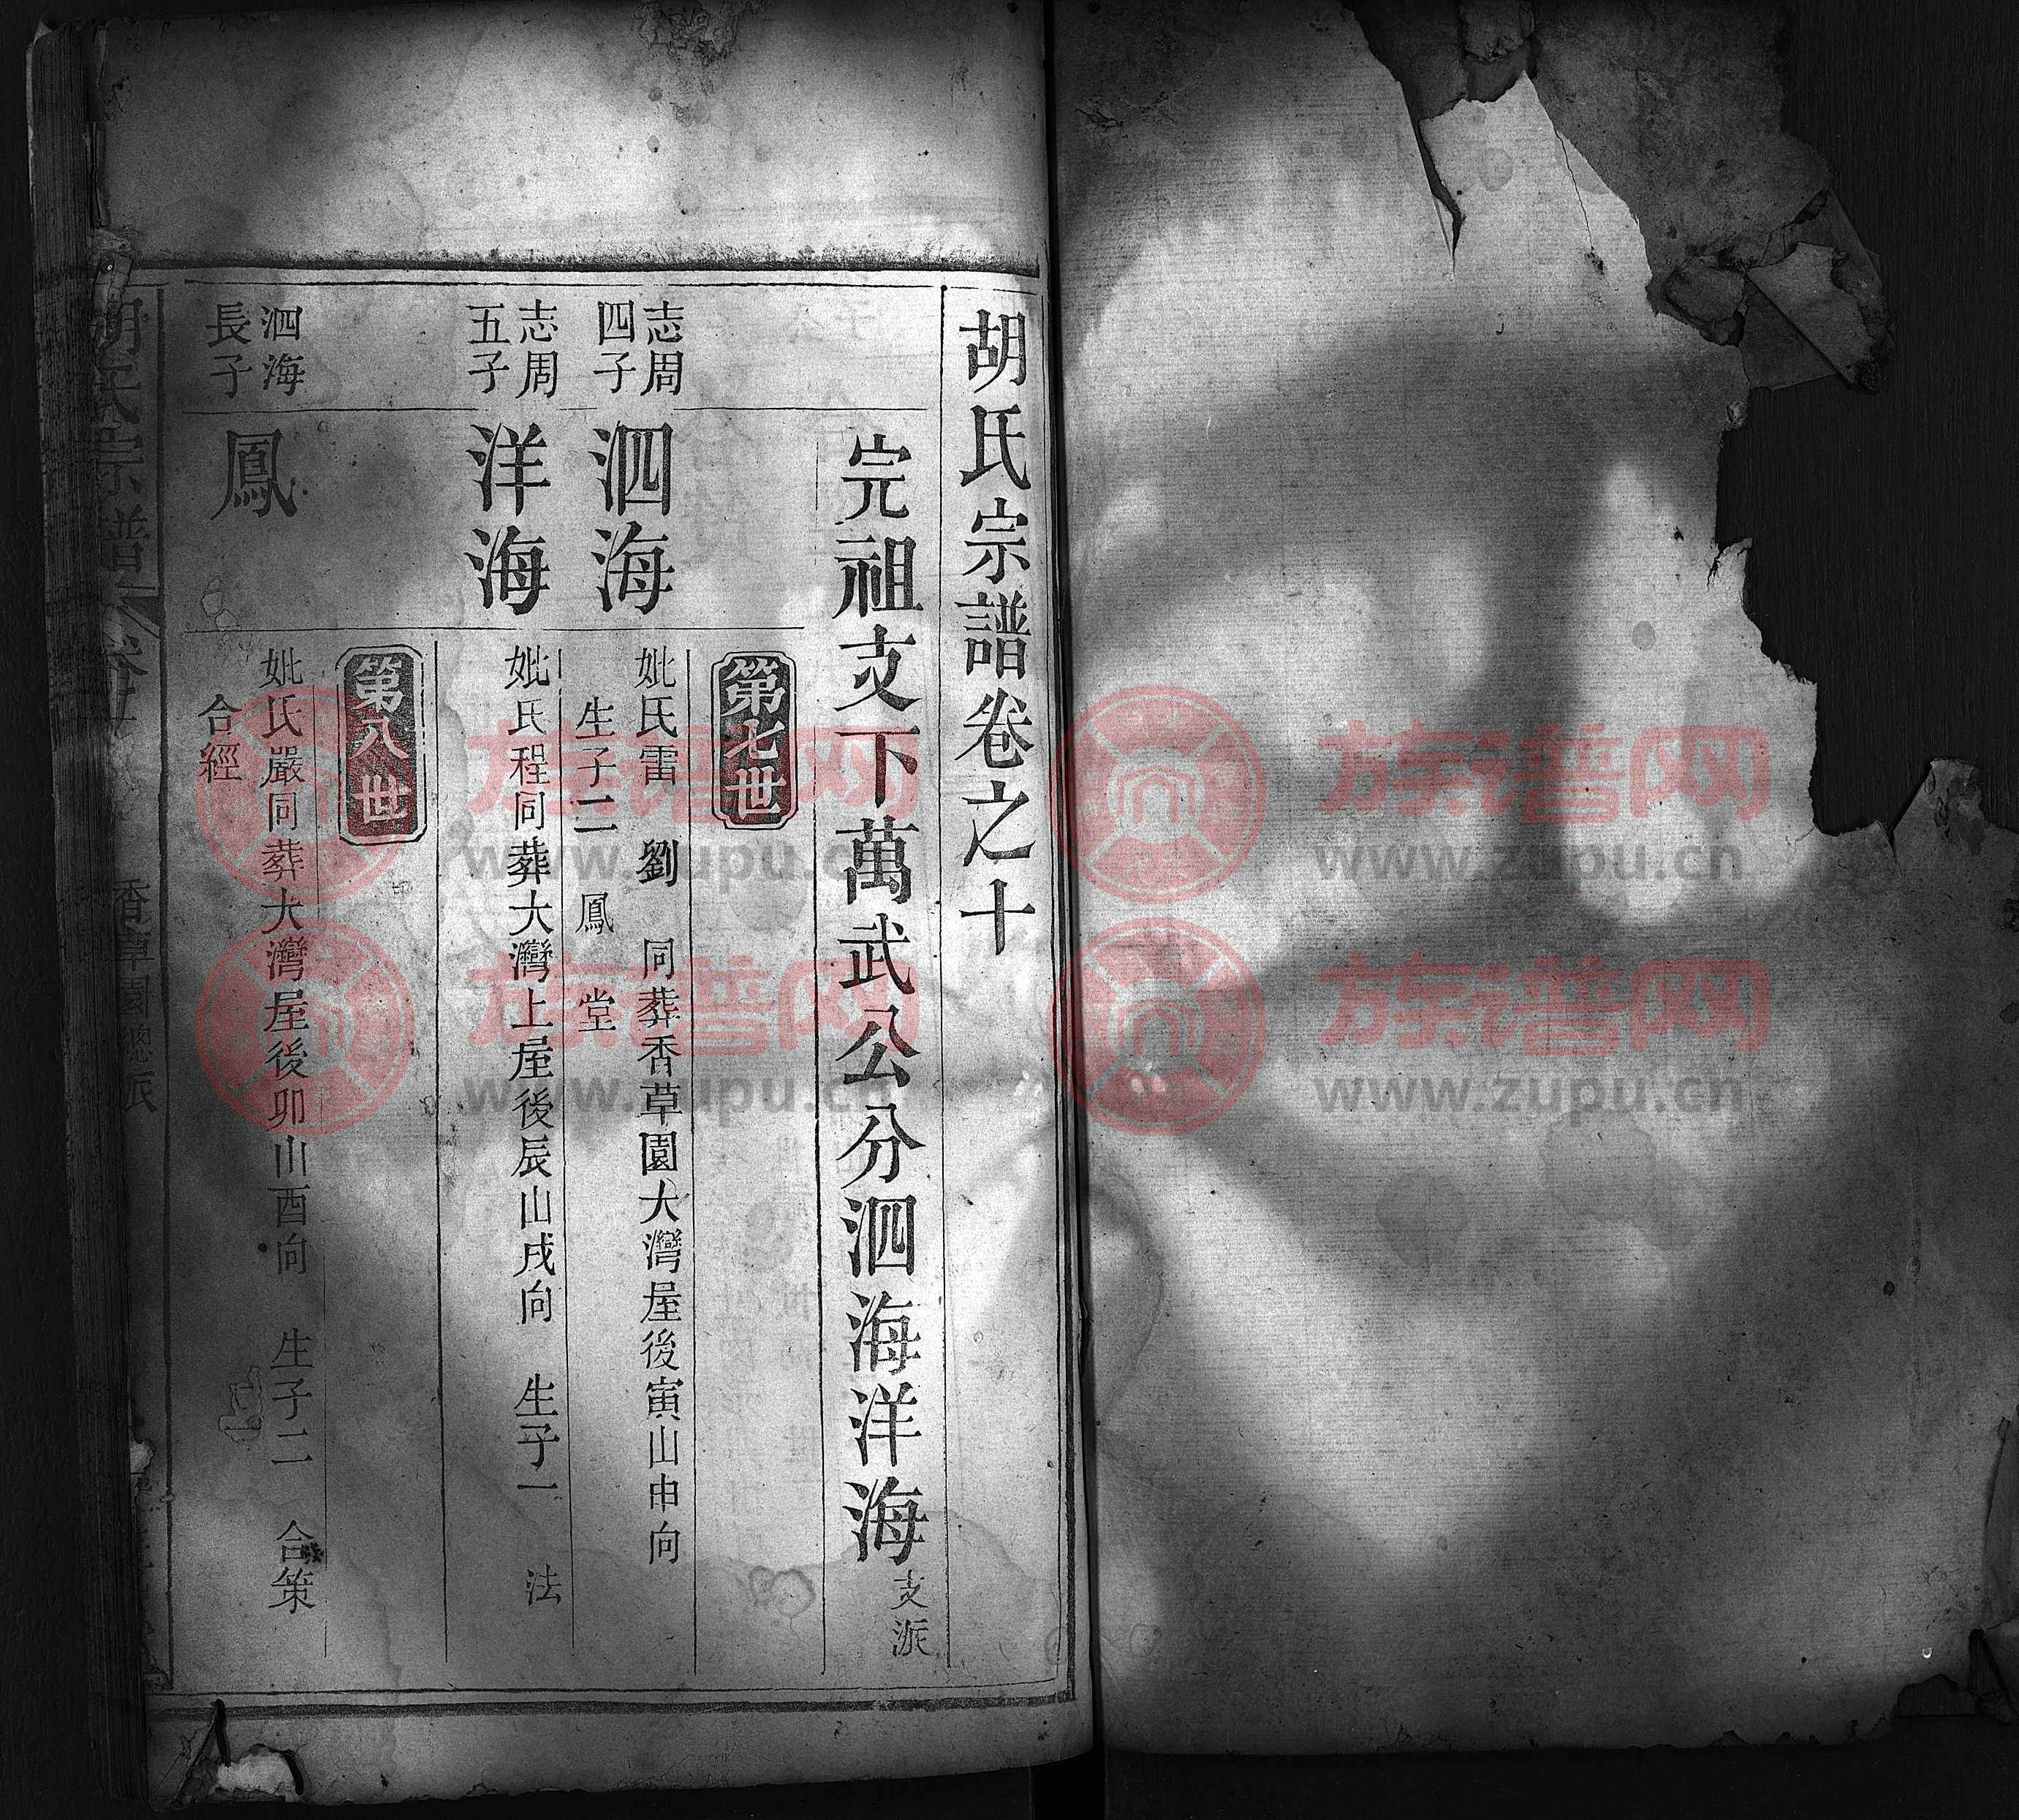 胡氏宗譜卷之十
完祖支下萬武公分泗海洋海支派
第七世
志周
四子
泗海
妣氏雷 劉 同葬香草園大灣屋後寅山申向
生子二 鳳 堂
志周
五子
洋海
妣氏程同葬大灣上屋後辰山戌向 生子一 法
第八世
泗海
長子
鳳
妣氏嚴同葬大灣屋後卯山酉向 生子二 合策
合經
胡氏宗譜
香草園總派
族谱网
www.zupu.cn
族谱网
www.zupu.cn
族谱网
www.zupu.cn
族谱网
www.zupu.cn